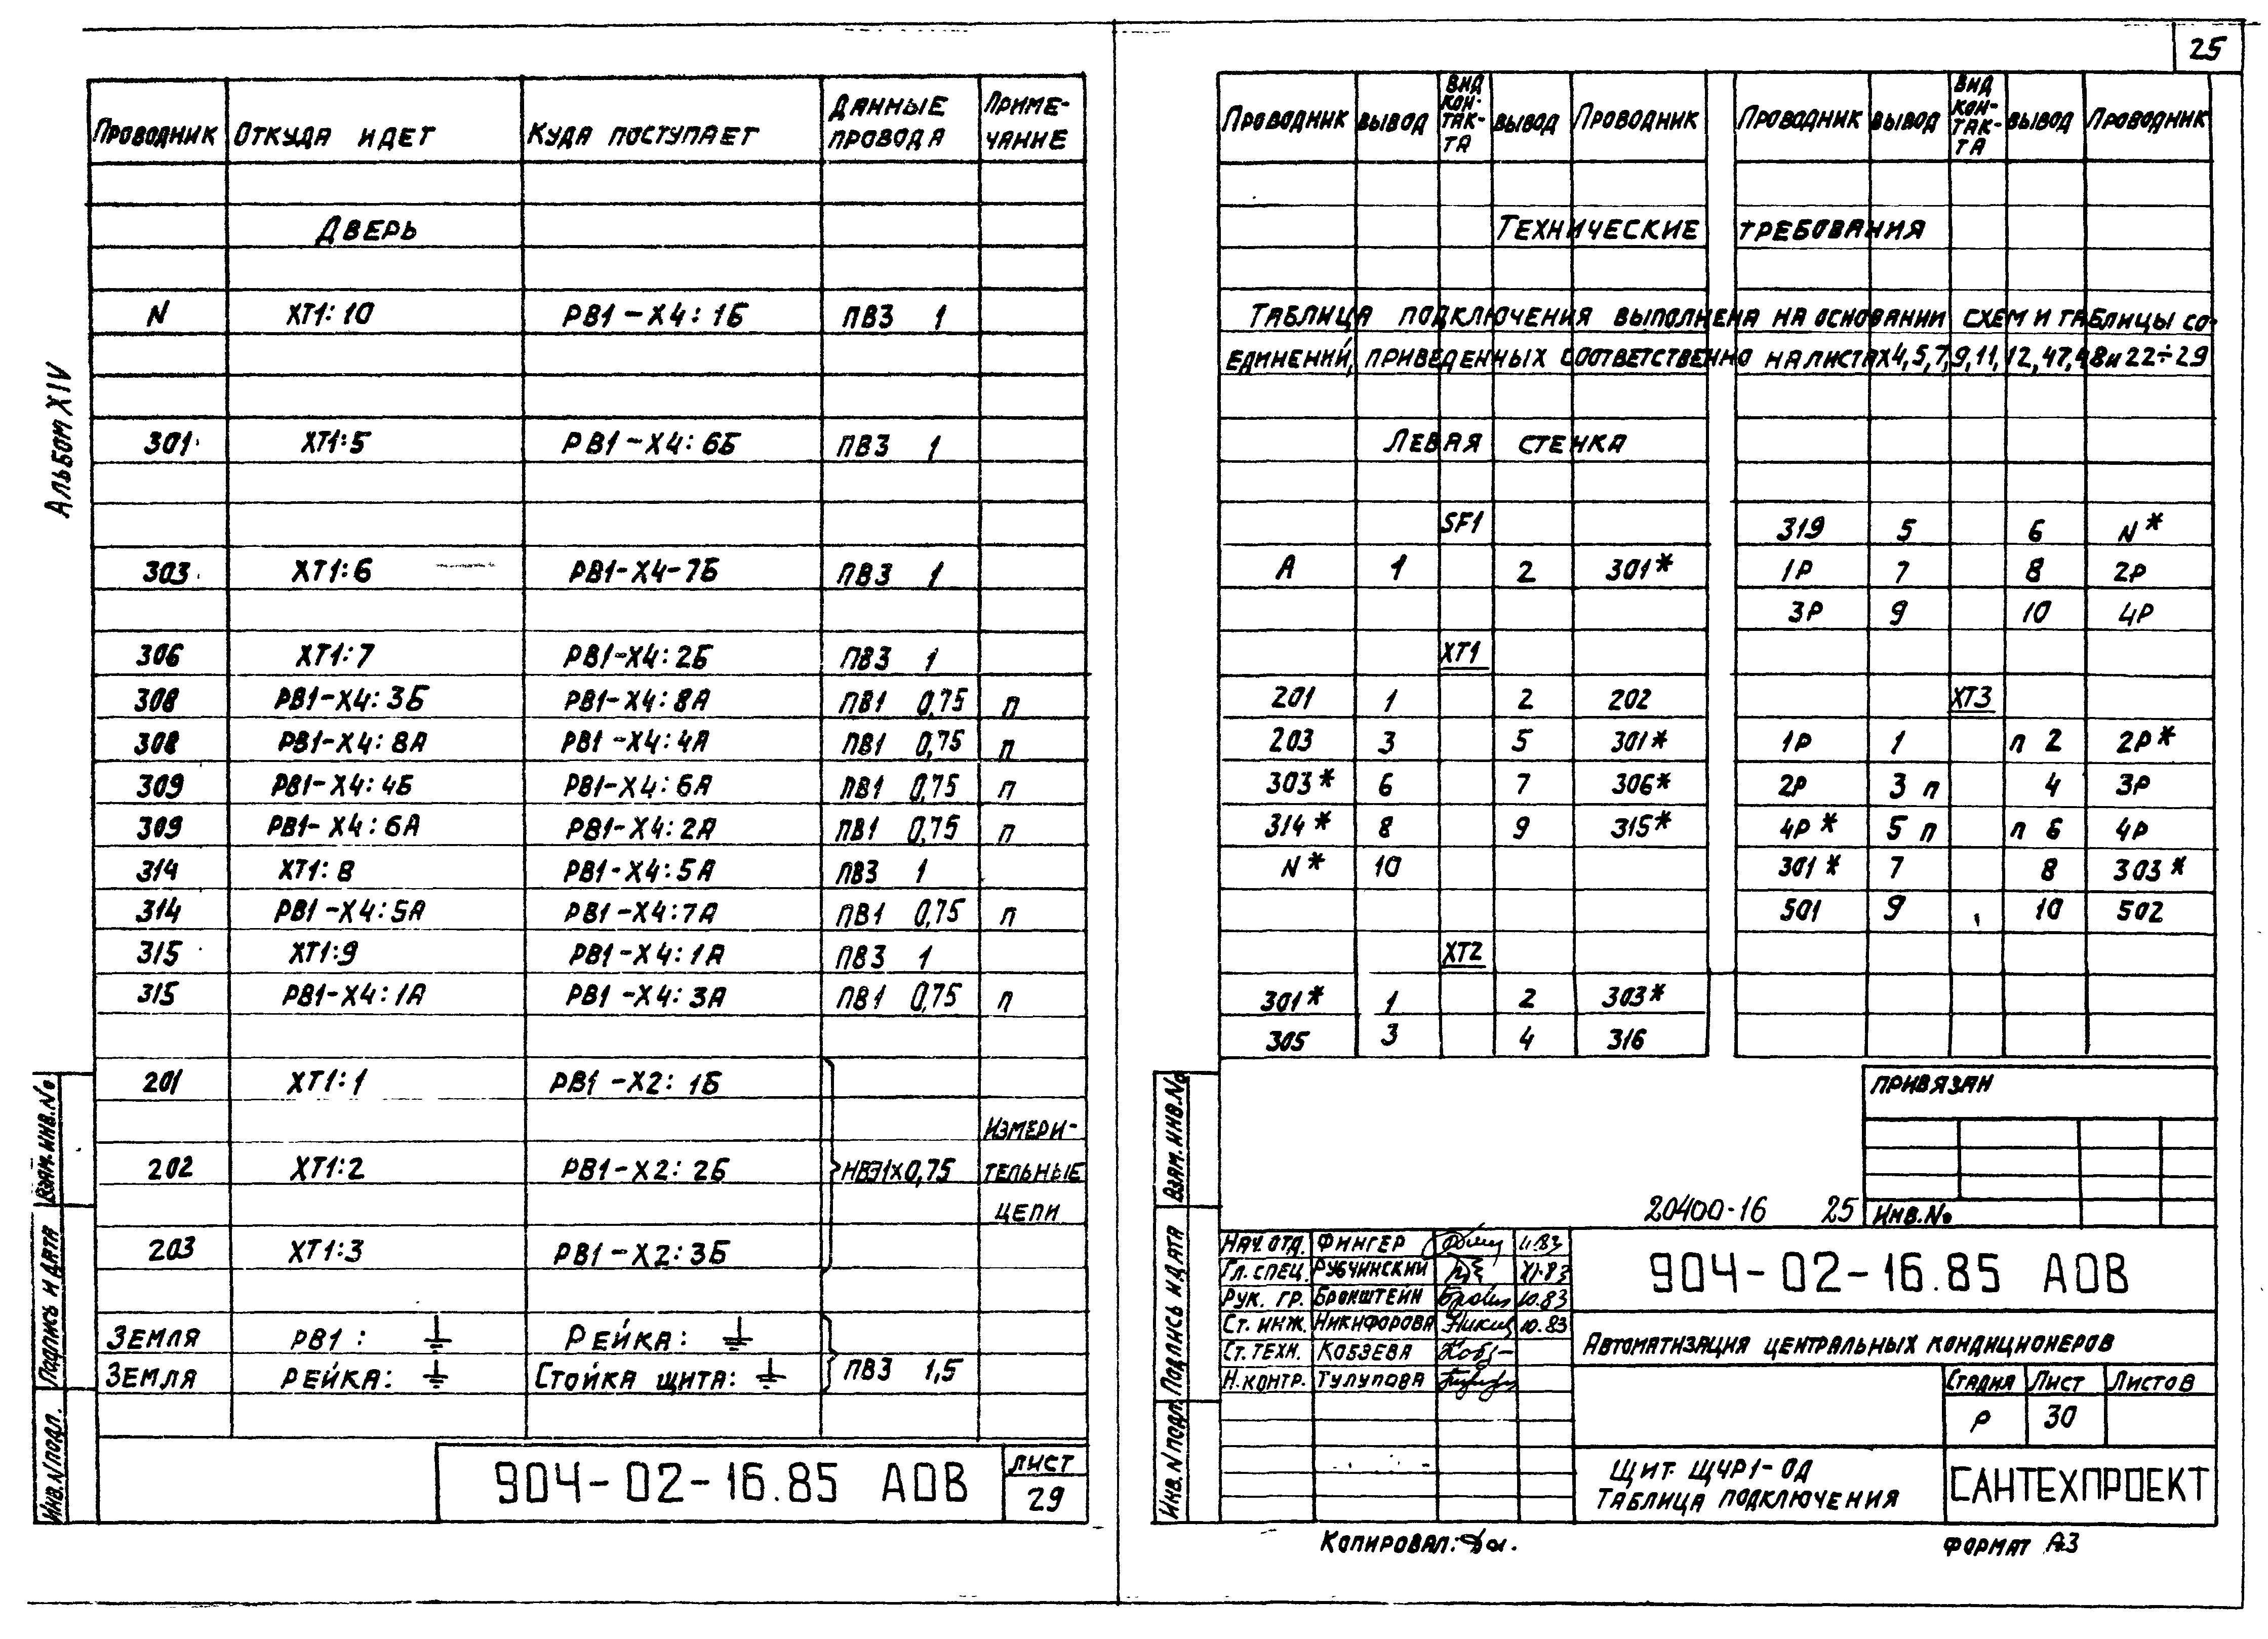 25
Альбом XIV
Проводник Откуда идет Куда поступает Данные провода Приме-чание
Дверь
N XT1:10 РВ1-X4:1Б ПВ3 1
301 XT1:5 РВ1-X4:6Б ПВ3 1
303 XT1:6 РВ1-X4-7Б ПВ3 1
306 XT1:7 РВ1-X4:2Б ПВ3 1
308 РВ1-X4:3Б РВ1-X4:8А ПВ1 0,75 п
308 РВ1-X4:8А РВ1-X4:4А ПВ1 0,75 п
309 РВ1-X4:4Б РВ1-X4:6А ПВ1 0,75 п
309 РВ1-X4:6А РВ1-X4:2А ПВ1 0,75 п
314 XT1:8 РВ1-X4:5А ПВ3 1
314 РВ1-X4:5А РВ1-X4:7А ПВ1 0,75 п
315 XT1:9 РВ1-X4:1А ПВ3 1
315 РВ1-X4:1А РВ1-X4:3А ПВ1 0,75 п
201 XT1:1 РВ1-X2:1Б
Измери-
202 XT1:2 РВ1-X2:2Б НВЭ1х0,75 тельные
цепи
203 XT1:3 РВ1-X2:3Б
Земля РВ1: ⏚ Рейка: ⏚
Земля Рейка: ⏚ Стойка щита: ⏚ ПВ3 1,5
904-02-16.85 АОВ
Лист
29
Взам.инв.№
Подпись и дата
Инв.N подл.
Проводник вывод вид кон-так-та вывод Проводник Проводник вывод вид кон-так-та вывод Проводник
Технические требования
Таблица подключения выполнена на основании схем и таблицы со-
единений, приведенных соответственно на листах 4,5,7,9,11,12,47,48 и 22÷29
Левая стенка
SF1 319 5 6 N*
А 1 2 301* 1Р 7 8 2Р
3Р 9 10 4Р
XT1
201 1 2 202 XT3
203 3 5 301* 1Р 1 п 2 2Р*
303* 6 7 306* 2Р 3 п 4 3Р
314* 8 9 315* 4Р* 5 п п 6 4Р
N* 10 301* 7 8 303*
501 9 10 502
XT2
301* 1 2 303*
305 3 4 316
Привязан
20400-16 25 Инв.№
Взам.инв.№
Подпись и дата
Инв.N подл.
Нач.отд. Фингер 11.83
Гл.спец. Рубчинский XI.83
Рук. гр. Бронштейн 10.83
Ст. инж. Никифорова 10.83
Ст.техн. Кобзева
Н.контр. Тулупова
904-02-16.85 АОВ
Автоматизация центральных кондиционеров
Стадия Лист Листов
Р 30
Щит ЩЧР1-ОД
Таблица подключения
САНТЕХПРОЕКТ
Копировал:
формат А3